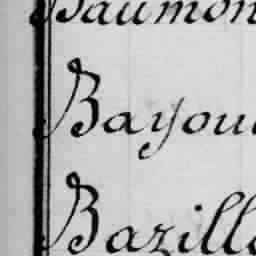 Baumon
Bayou
Bazill